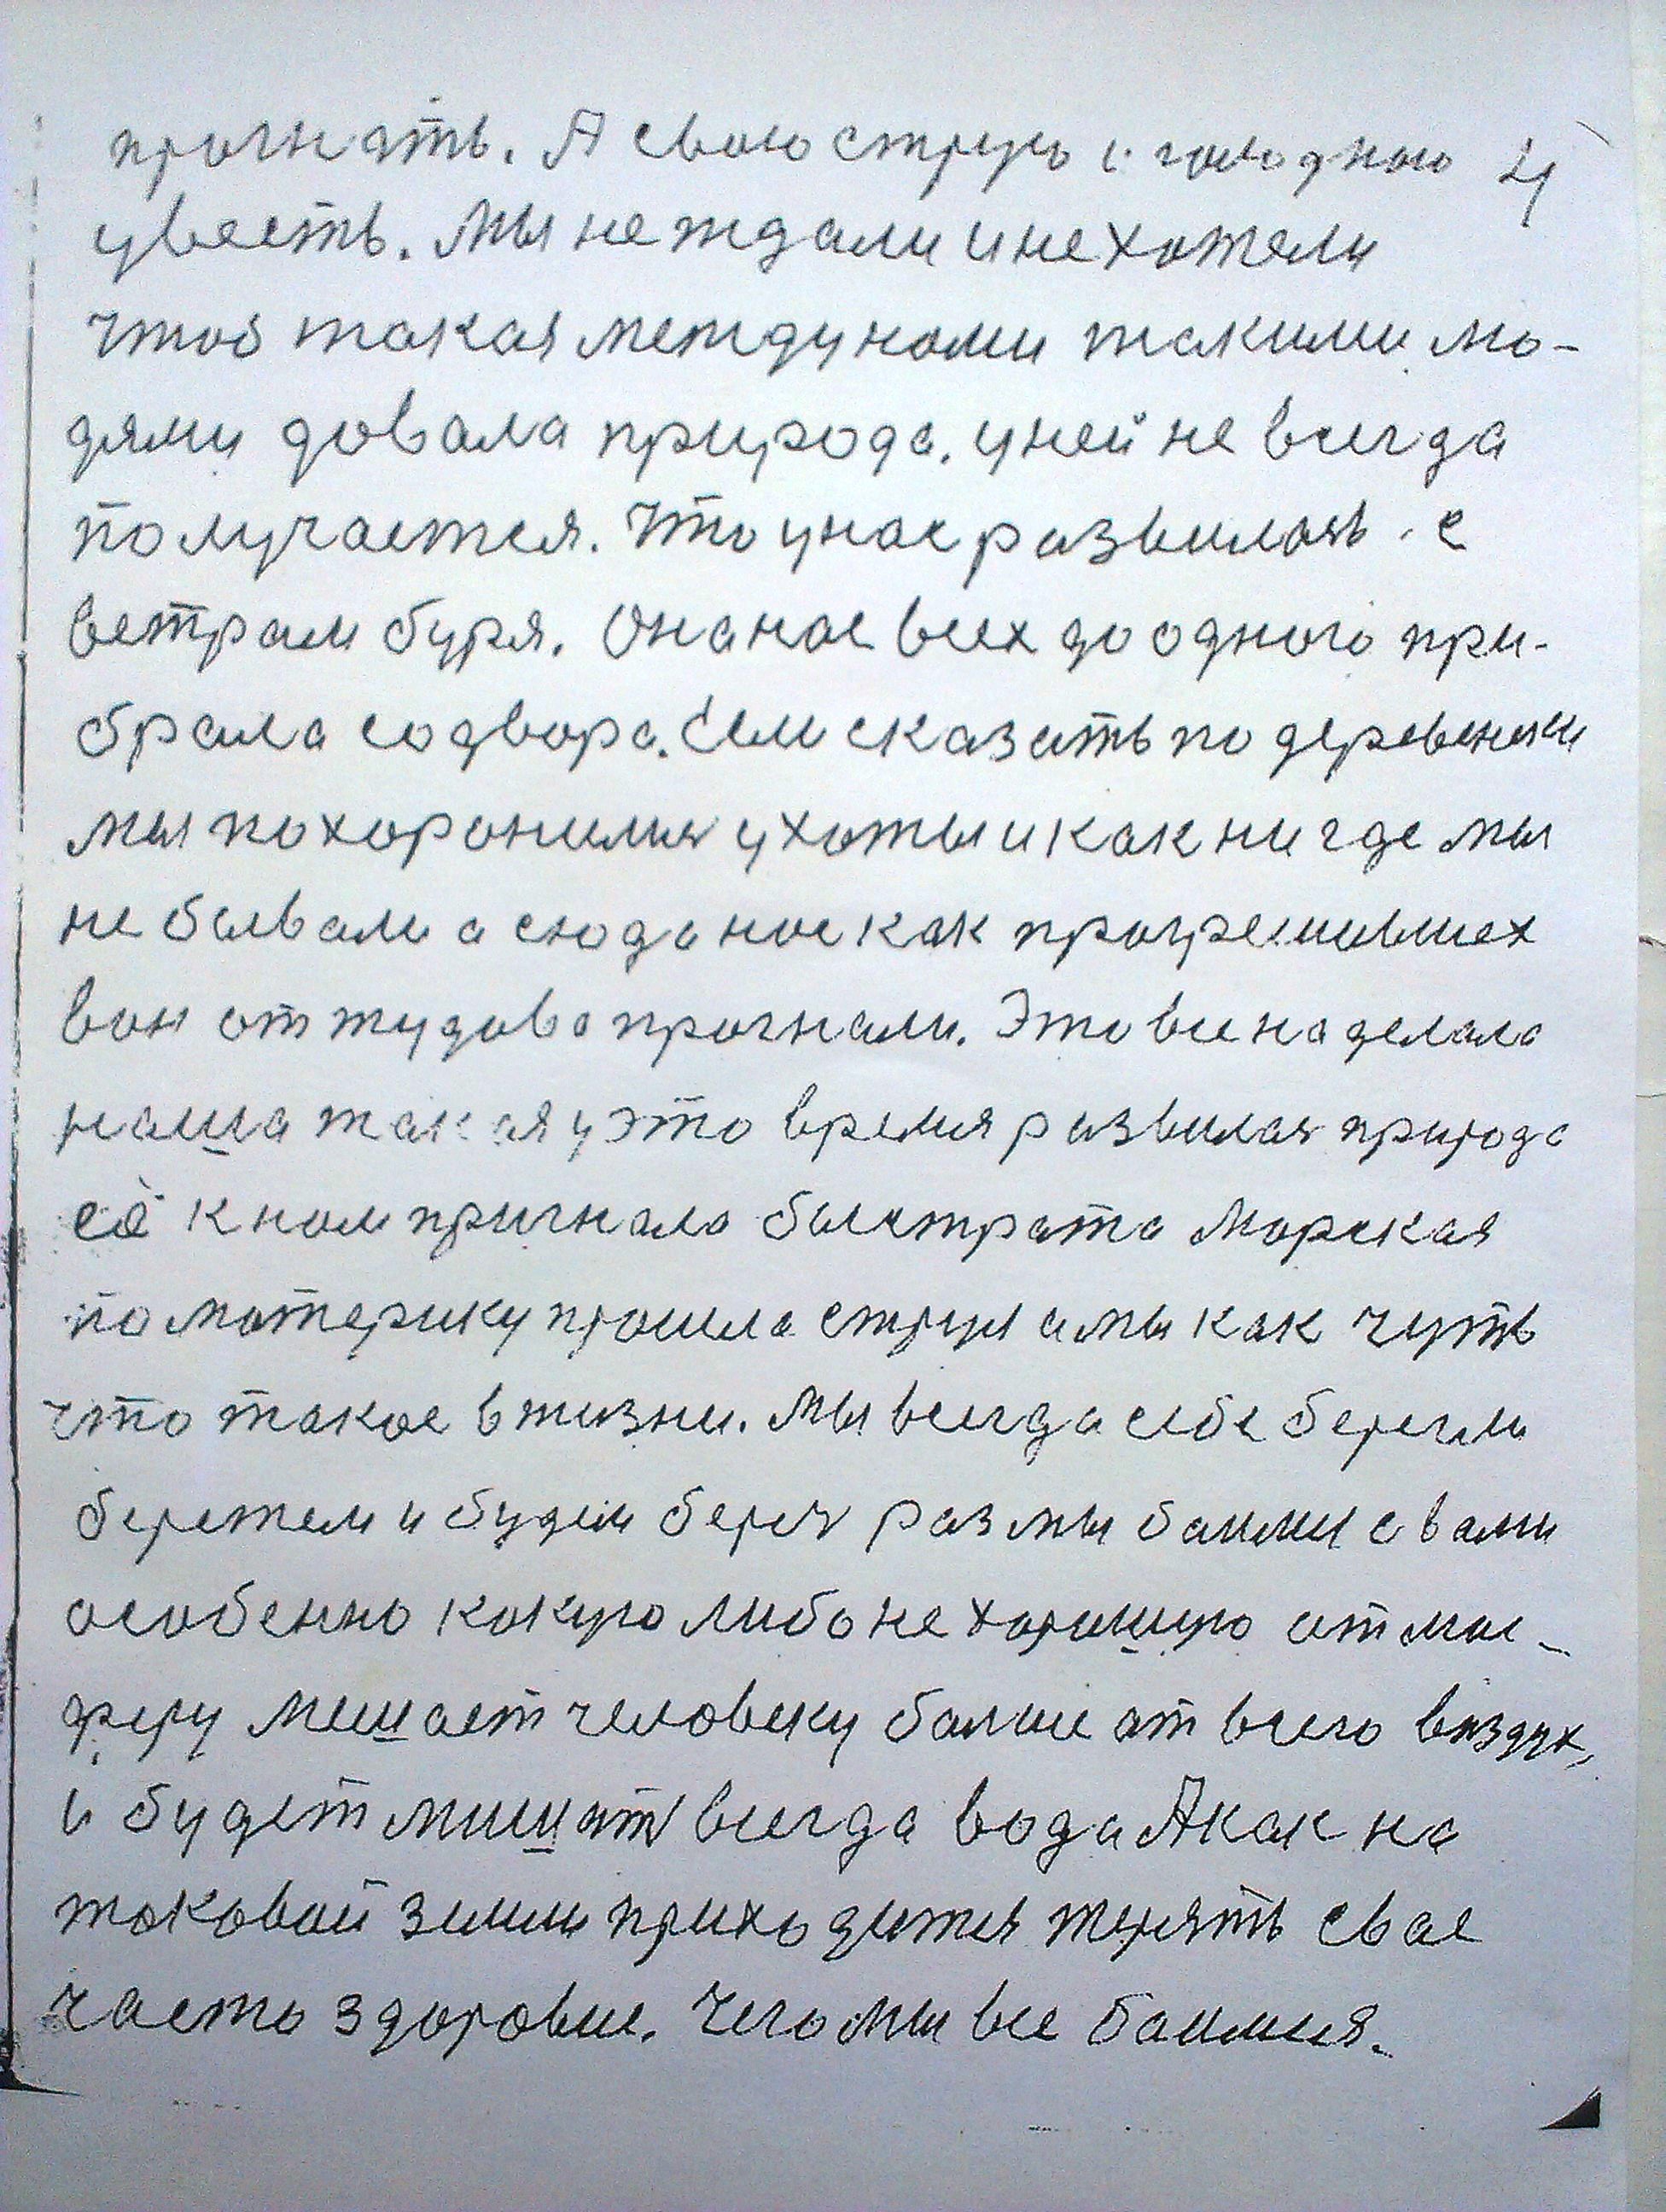 прогнать. А свою струю и голодною 4
увесть. Мы не ждали и не хотели
чтоб такая между нами такими лю-
дями довала природа. у ней не всегда
получается. Что у нас развилась с
ветрам буря. Она нас всех до одного при-
брала со двора. Если сказать по деревенски
мы похоронилис у хоты и как ни где мы
не бывали а сюда нас как прогрешивших
вон оттудова прогнали. Это все наделала
наша такая у это время развилас природа
её к нам пригнала быстрата Морская
по материку прошла струя а мы как чуть
что такое в жизни. Мы всегда себе берегли
бережем и будем береч раз мы баимси с вами
особенно какую либо не хорошую атмос-
феру мешает человеку балше ат всего воздух,
и будет мишат всегда вода А как на
таковой земли приходится терять свае
часто здоровие. Чего мы все баимся.